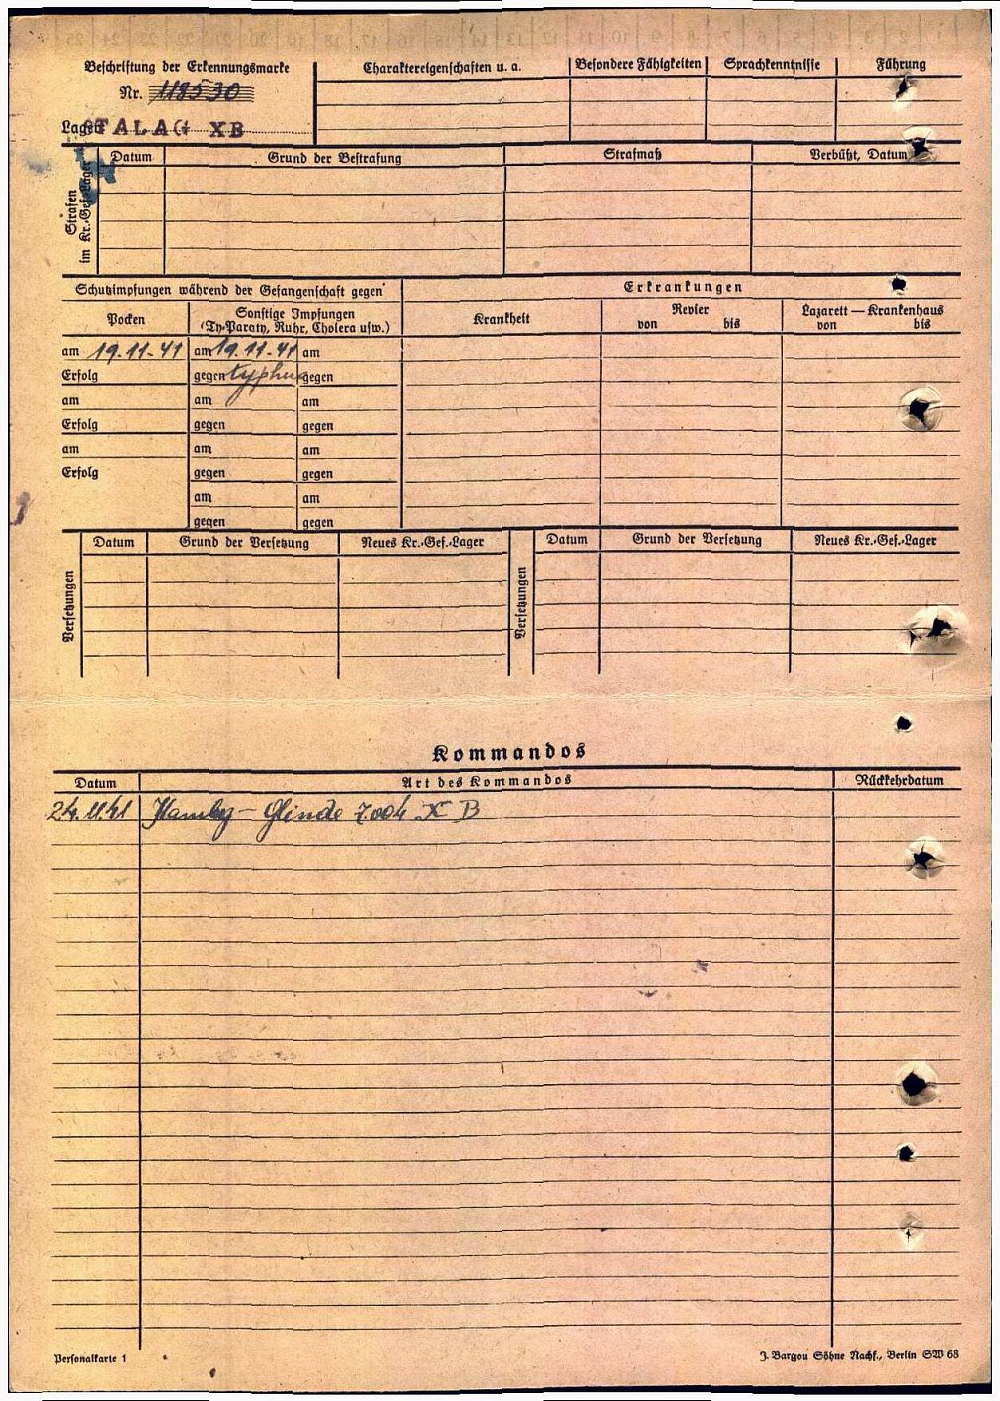 Beschriftung der Erkennungsmarke
Nr. 118530
Lager STALAG XB
Charaktereigenschaften u. a.
Besondere Fähigkeiten
Sprachkenntnisse
Führung
Strafen im Kr.-Gef.-Lager
Datum
Grund der Bestrafung
Strafmaß
Verbüßt, Datum
Schutzimpfungen während der Gefangenschaft gegen
Erkrankungen
Pocken
Sonstige Impfungen
(Ty-Paraty, Ruhr, Cholera usw.)
Krankheit
Revier
von bis
Lazarett — Krankenhaus
von bis
am 19.11.41 am 19.11.41 am
Erfolg gegen typhus gegen
am am am
Erfolg gegen gegen
am am am
Erfolg gegen gegen
am am
gegen gegen
Versetzungen
Datum Grund der Versetzung Neues Kr.-Gef.-Lager
Versetzungen
Datum Grund der Versetzung Neues Kr.-Gef.-Lager
Kommandos
Datum Art des Kommandos Rückkehrdatum
24.11.41 Hambg - Glinde 7004 X B
Personalkarte 1
J. Bargou Söhne Nachf., Berlin SW 68